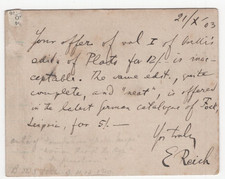 21/X 03
Your offer of vol I of
edit. of Plato for 12/- is inac-
ceptable. The same edit., quite
complete, and "neat", is offered
in the latest German catalogue of Fock,
Leipzic, for 5/—
Yrs truly
E. Reich